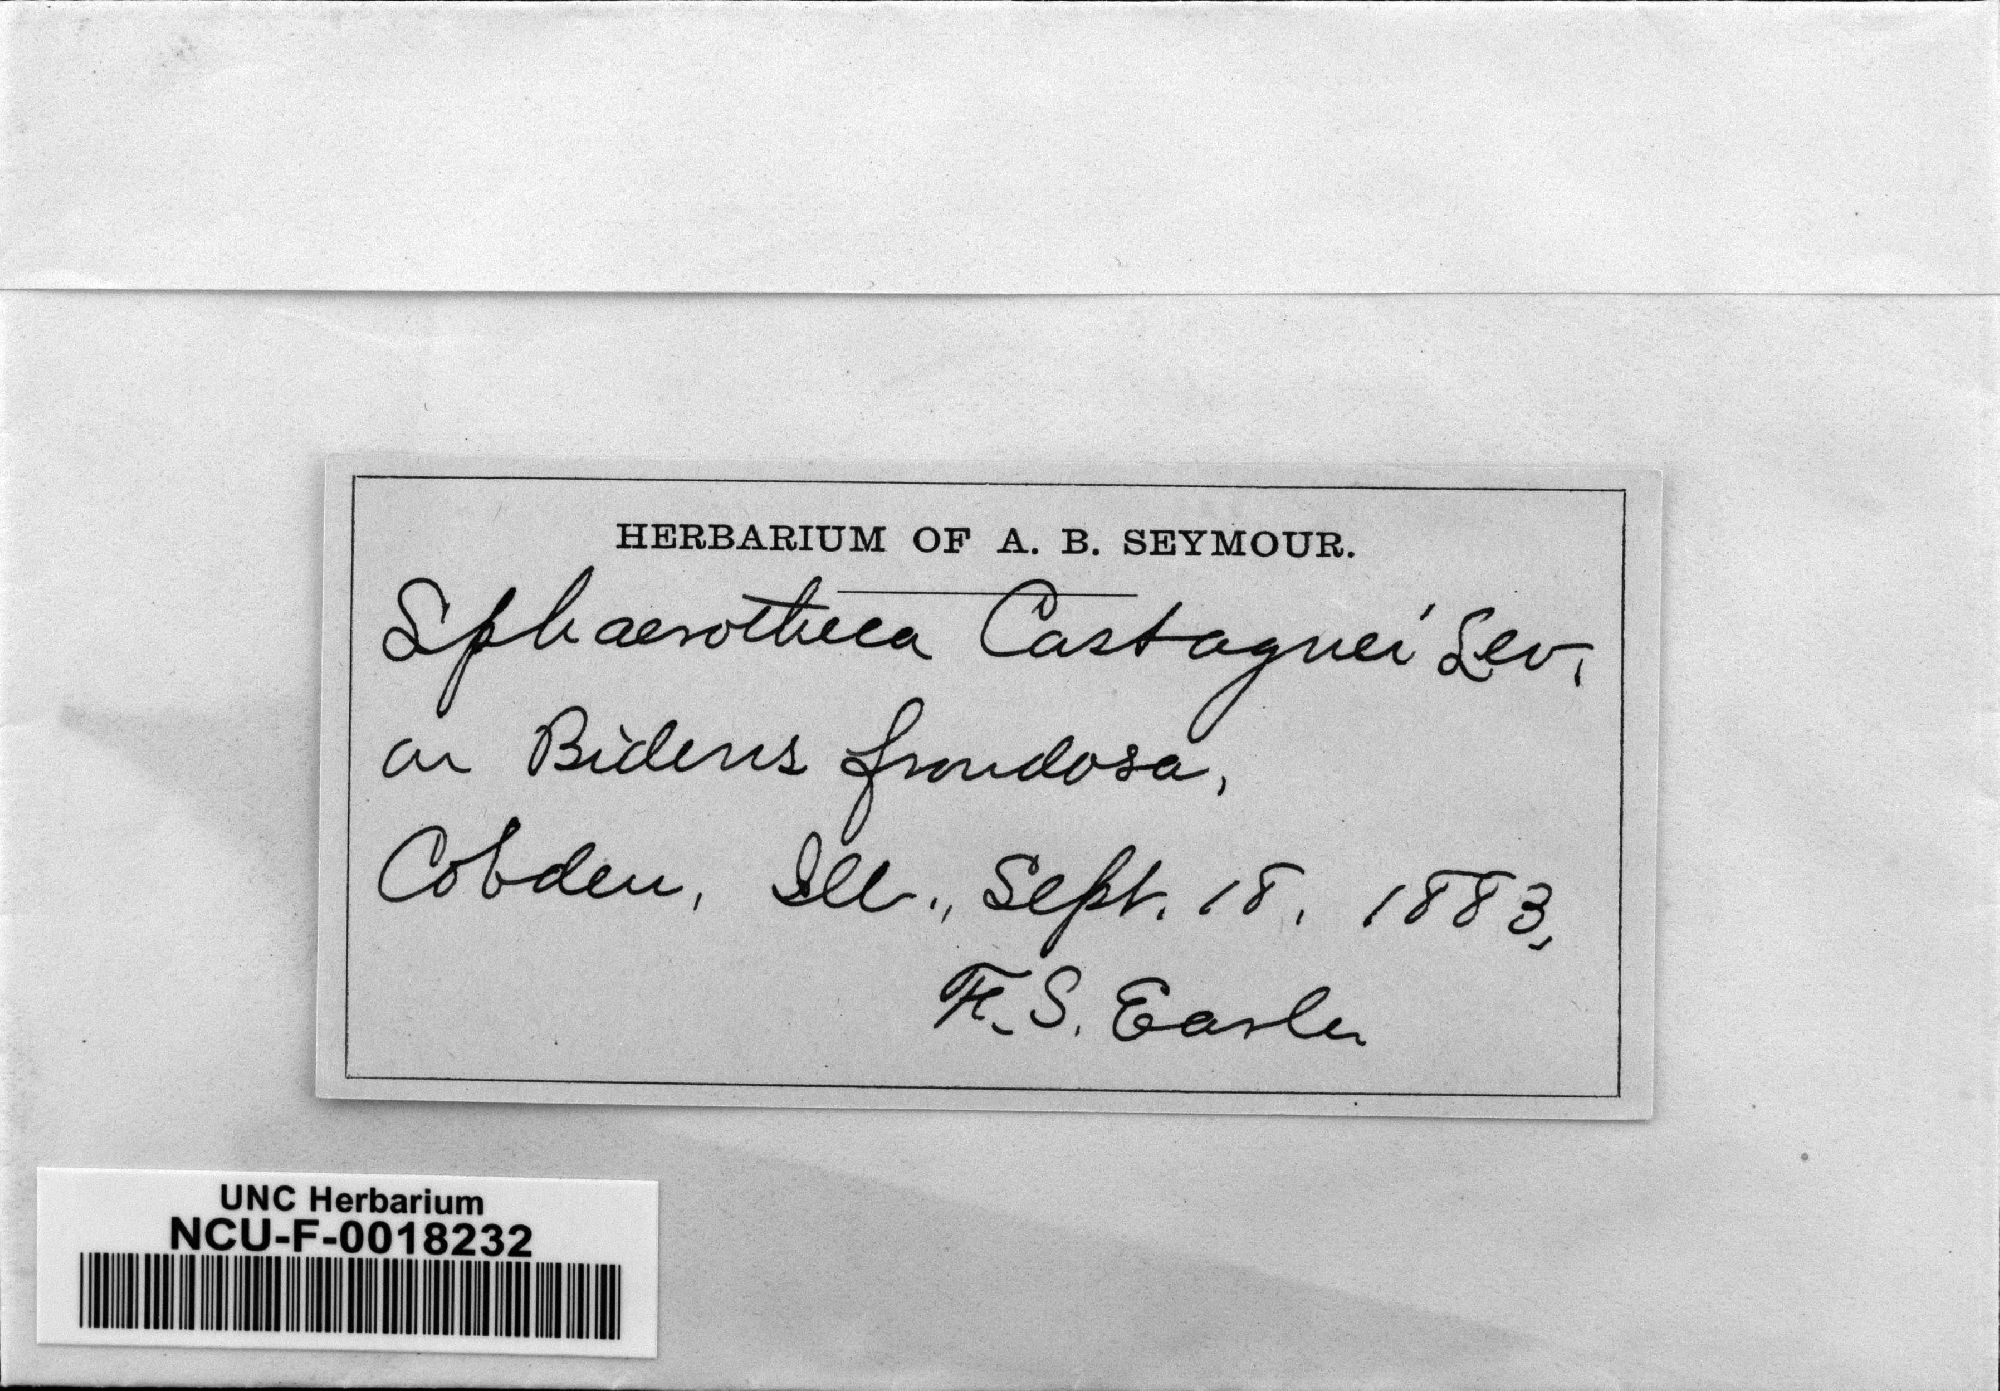 HERBARIUM OF A. B. SEYMOUR.
Sphaerotheca Castagnei Lev.
on Bidens frondosa,
Cobden, Ill., Sept. 18, 1883,
F. S. Earle
UNC Herbarium
NCU-F-0018232